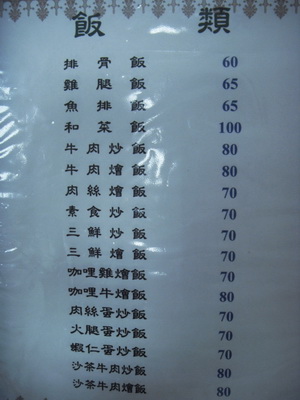 飯 類
排骨飯 60
雞腿飯 65
魚排飯 65
和菜飯 100
牛肉炒飯 80
牛肉燴飯 80
肉絲燴飯 70
素食炒飯 70
三鮮炒飯 70
三鮮燴飯 70
咖哩雞燴飯 70
咖哩牛燴飯 80
肉絲蛋炒飯 70
火腿蛋炒飯 70
蝦仁蛋炒飯 70
沙茶牛肉炒飯 80
沙茶牛肉燴飯 80